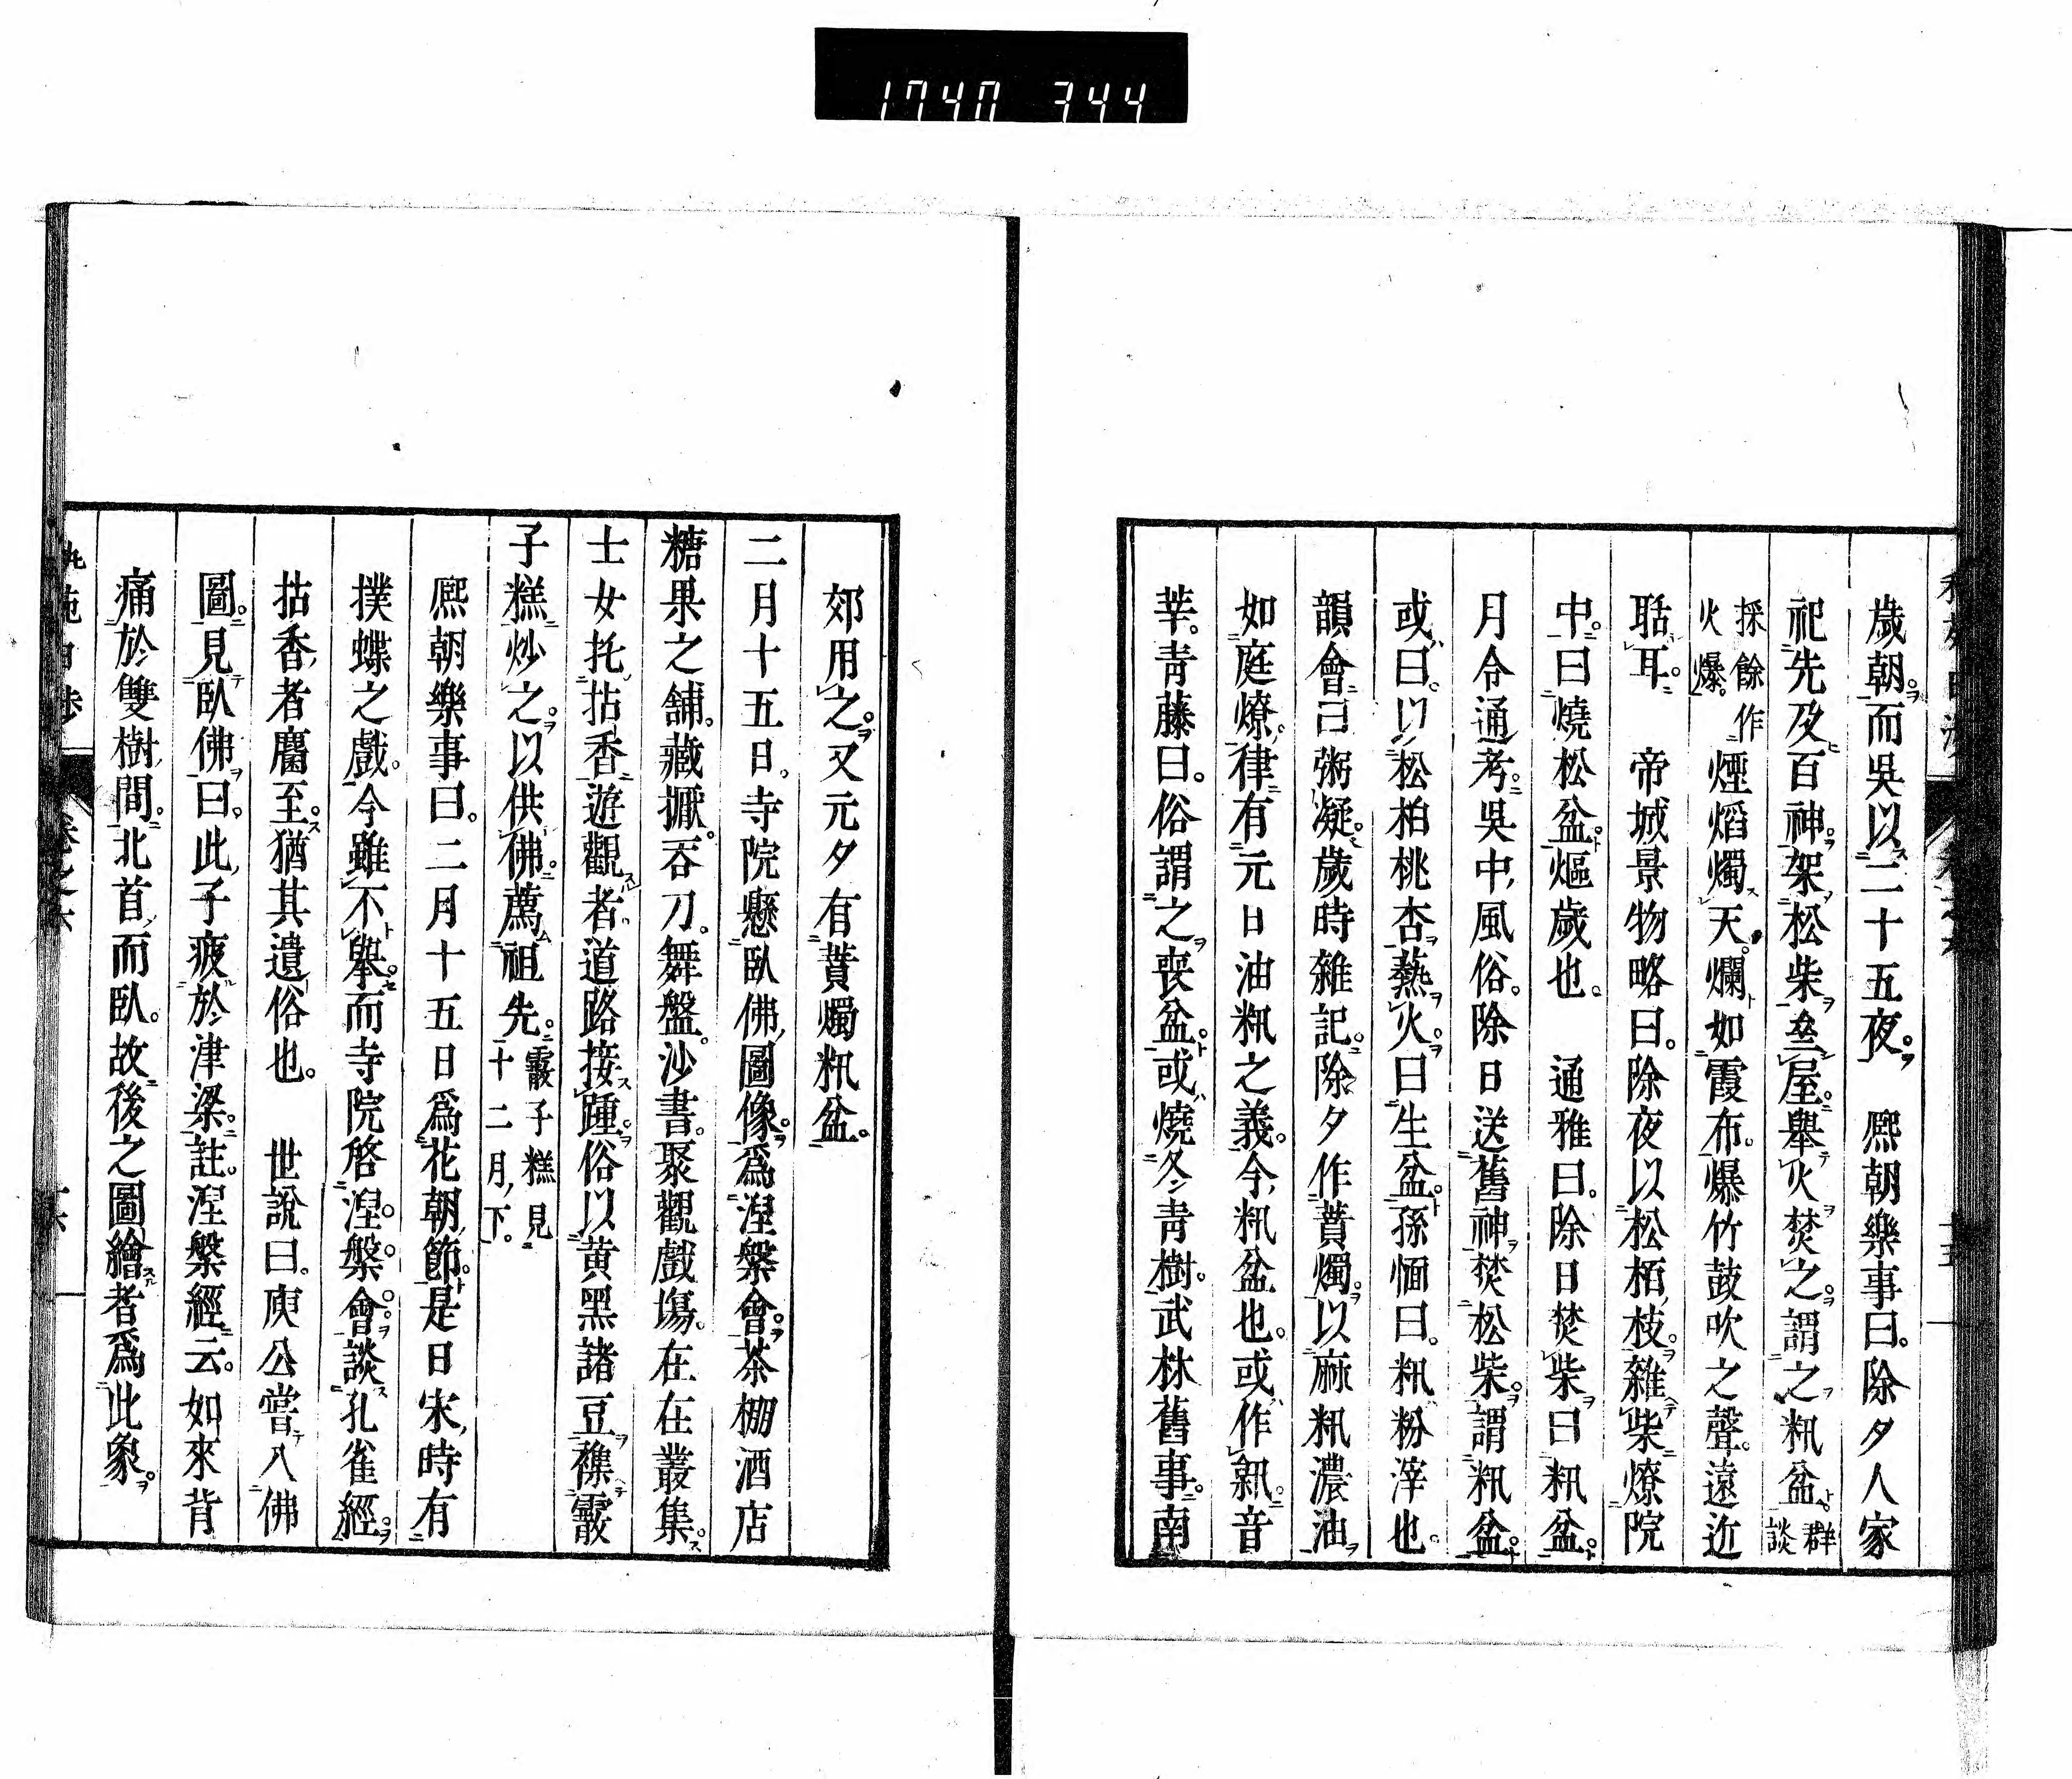 1740 344
歲朝。而吳以二十五夜。 熈朝樂事曰。除夕人家
祀先及百神。架松柴叠屋。舉火焚之。謂之籸盆。群談
採餘作火爆。煙熖燭天。爛如霞布。爆竹鼓吹之聲。遠近
聒耳。 帝城景物略曰。除夜以松栢枝。雜柴燎院
中。曰燒松盆。熰歲也。 通雅曰。除日焚柴曰籸盆。
月令通考。吳中風俗。除日送舊神焚松柴。謂籸盆。
或曰。以松柏桃杏爇火。曰生盆。孫愐曰。籸粉滓也。
韻會曰粥凝。歲時雜記。除夕作蕡燭。以麻籸濃油
如庭燎。律有元日油籸之義。今籸盆也。或作𥹢。音
莘。青藤曰。俗謂之喪盆。或燒冬青樹。武林舊事。南
郊用之。又元夕有蕡燭籸盆。
二月十五日。寺院懸臥佛圖像。爲涅槃會。茶棚酒店
糖果之舖。藏擫。吞刀。舞盤。沙書。聚觀戲塲。在在叢集。
士女扥拈香遊觀者。道路接踵。俗以黄黑諸豆襍霰
子糕炒之。以供佛。薦祖先。霰子糕見十二月下。
熈朝樂事曰。二月十五日爲花朝節。是日宋時有
撲蝶之戲。今雖不擧。而寺院啓涅槃會。談孔雀經。
拈香者麕至。猶其遺俗也。 世說曰。庾公嘗入佛
圖。見臥佛曰。此子疲於津梁。註。涅槃經云。如來背
痛於雙樹間。北首而臥。故後之圖繪者爲此象。